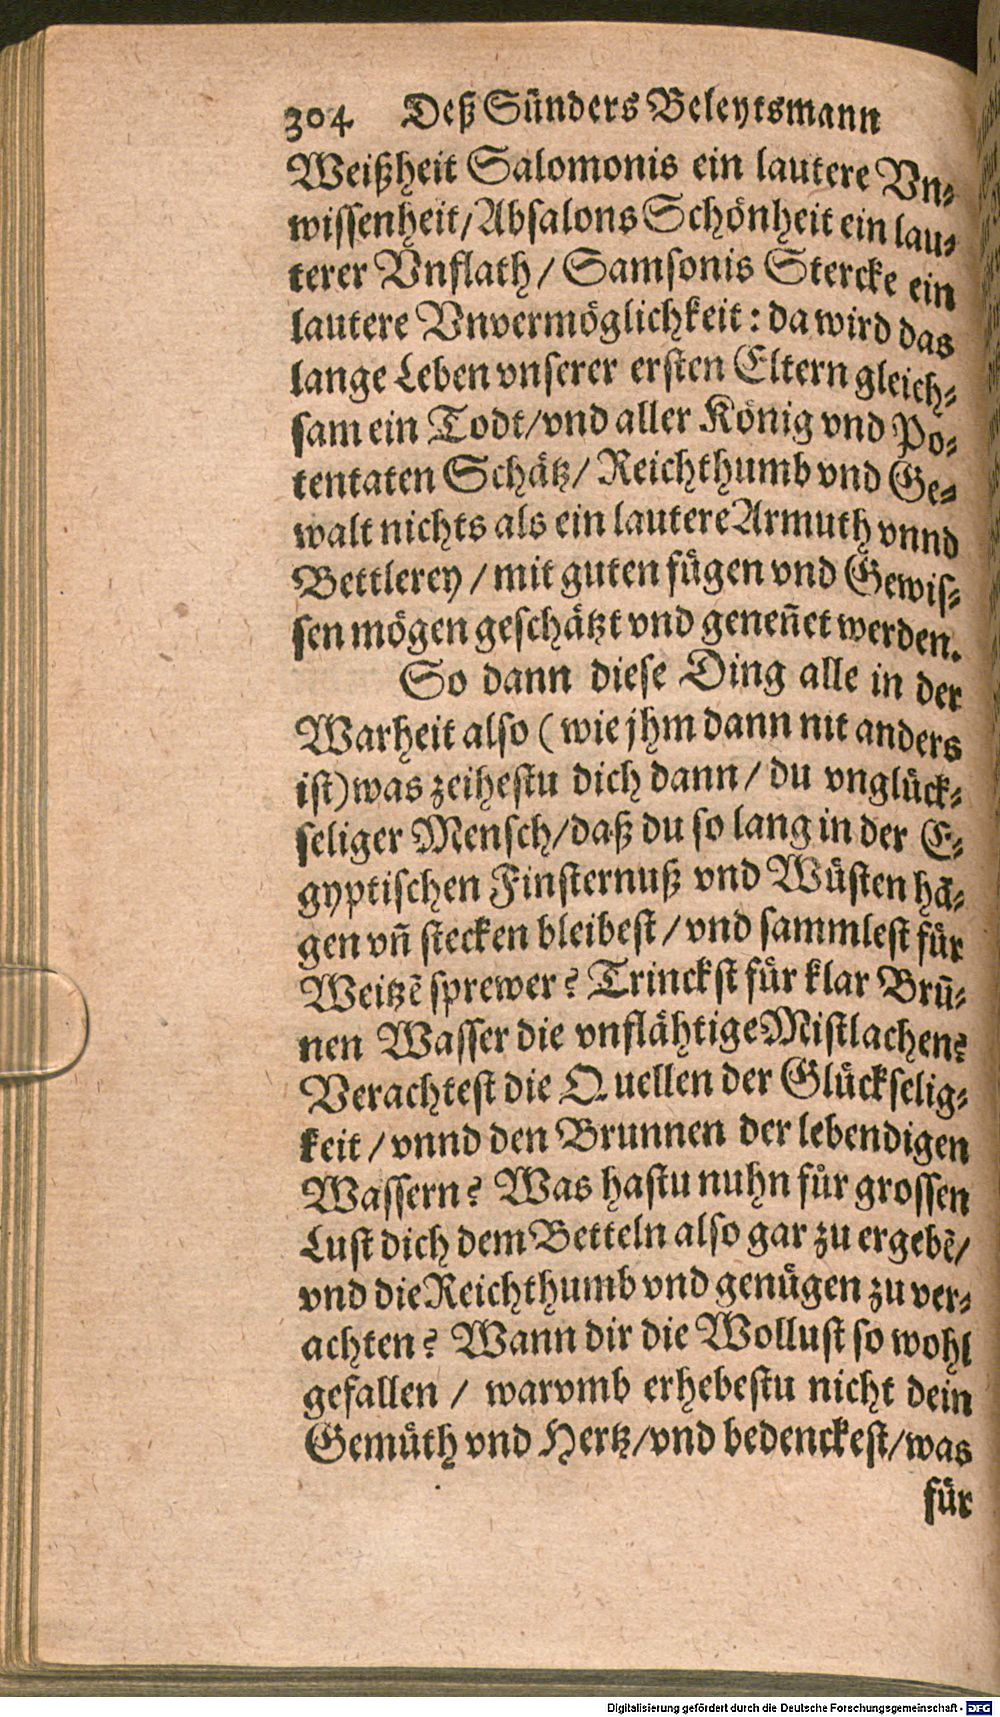 304 Deß Sünders Beleytsmann
Weißheit Salomonis ein lautere Vn-
wissenheit/Absalons Schönheit ein lau-
terer Vnflath/ Samsonis Stercke ein
lautere Vnvermöglichkeit: da wird das
lange Leben vnserer ersten Eltern gleich-
sam ein Todt/vnd aller König vnd Po-
tentaten Schätz/ Reichthumb vnd Ge-
walt nichts als ein lautere Armuth vnnd
Bettlerey / mit guten fügen vnd Gewis-
sen mögen geschätzt vnd geneñet werden.
So dann diese Ding alle in der
Warheit also (wie jhm dann nit anders
ist) was zeihestu dich dann/ du vnglück-
seliger Mensch/daß du so lang in der E-
gyptischen Finsternuß vnd Wüsten hā-
gen vñ stecken bleibest/vnd sammlest für
Weitzē sprewer? Trinckst für klar Brūn-
nen Wasser die vnflähtige Mistlachen?
Verachtest die Quellen der Glückselig-
keit /vnnd den Brunnen der lebendigen
Wassern? Was hastu nuhn für grossen
Lust dich dem Betteln also gar zu ergebē/
vnd die Reichthumb vnd genügen zu ver-
achten? Wann dir die Wollust so wohl
gefallen / warvmb erhebestu nicht dein
Gemüth vnd Hertz/vnd bedenckest/was
für
Digitalisierung gefördert durch die Deutsche Forschungsgemeinschaft - DFG